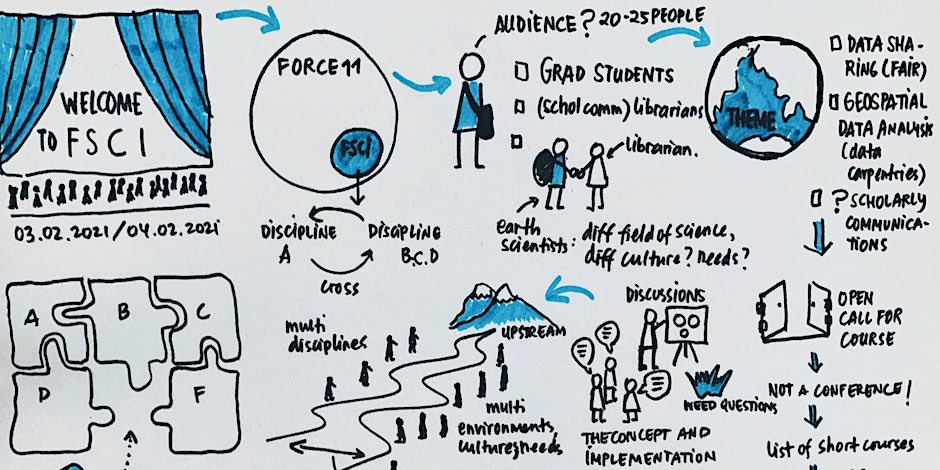 WELCOME
TO FSCI
03.02.2021/04.02.2021
FORCE11
FSCI
DISCIPLINE
A
DISCIPLINE
B.C.D
CROSS
AUDIENCE? 20-25 PEOPLE
GRAD STUDENTS
(scholcomm) librarians
librarian.
earth
scientists:
diff field of science,
diff culture? needs?
THEME
DATA SHA-
RING (FAIR)
GEOSPATIAL
DATA ANALYSIS
(data
carpentries)
? SCHOLARLY
COMMUNICA-
TIONS
OPEN
CALL FOR
COURSE
NOT A CONFERENCE!
list of short courses
DISCUSSIONS
NEED QUESTIONS
THE CONCEPT AND
IMPLEMENTATION
UPSTREAM
multi
disciplines
multi
environments,
cultures needs
A
B
C
D
F